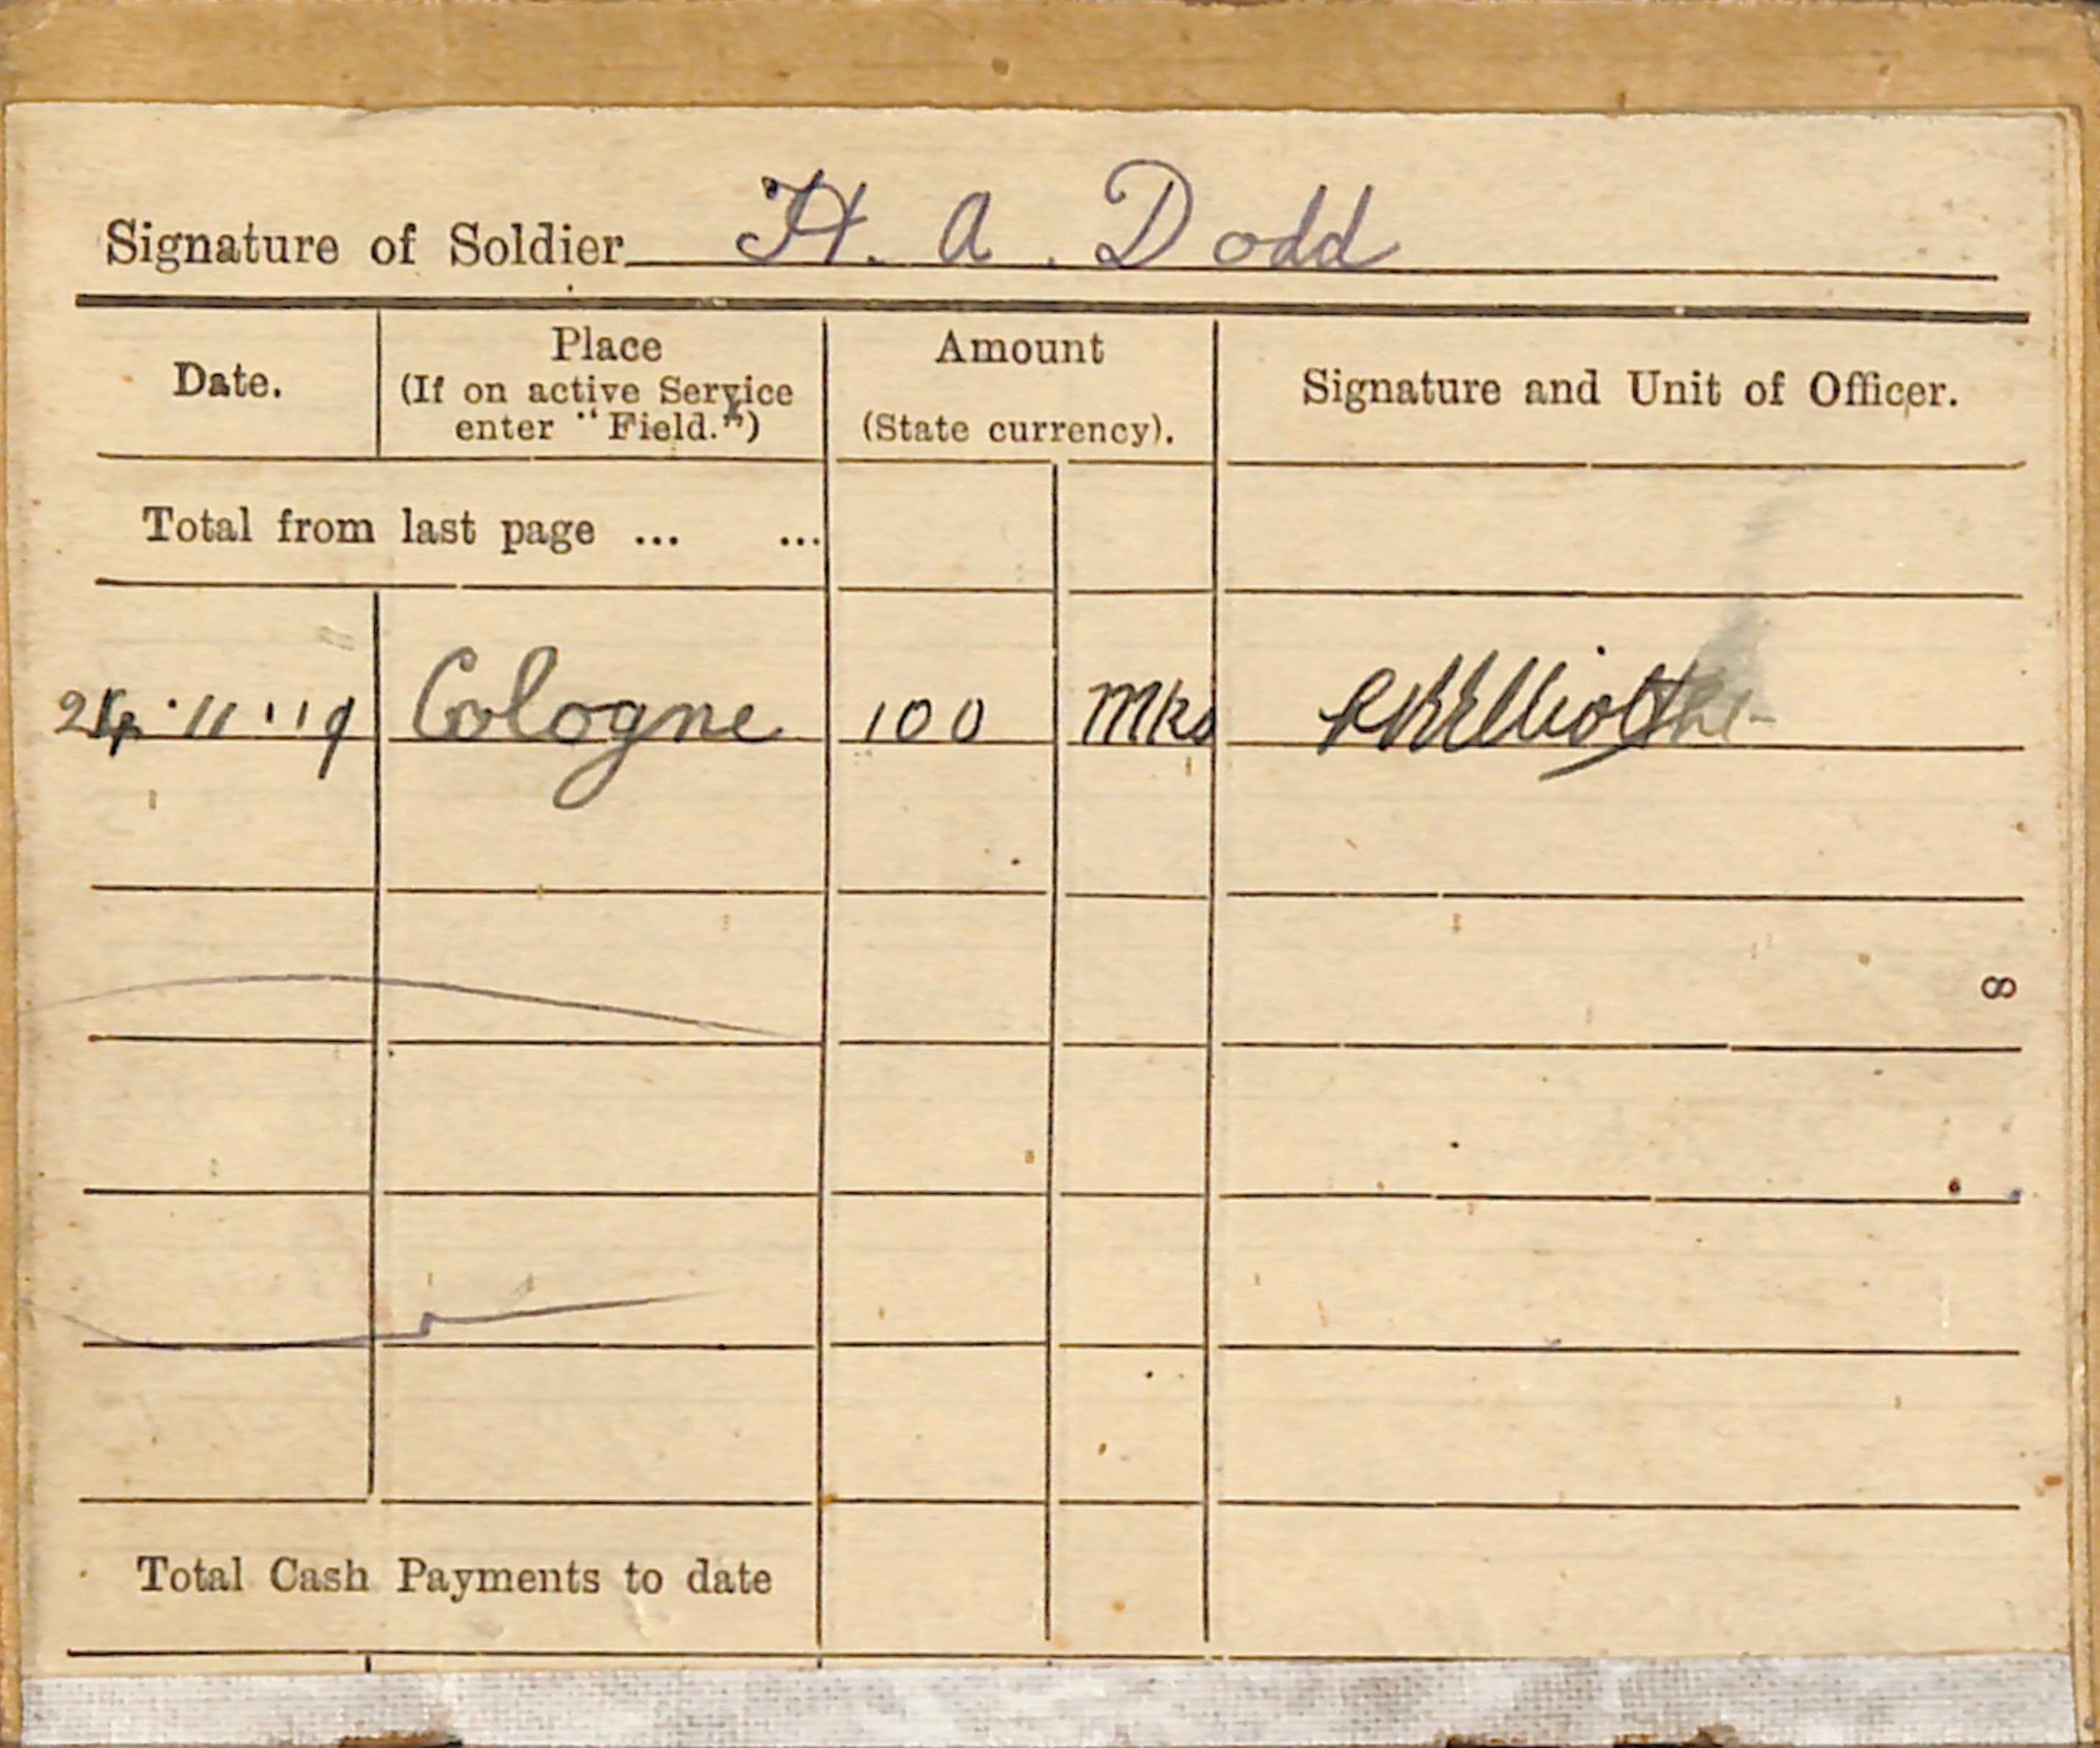 Signature of Soldier H. A. Dodd
Date.
Place
(If on active Service
enter "Field.")
Amount
(State currency).
Signature and Unit of Officer.
Total from last page ... ...
24.11.19 Cologne 100 Mks
8
Total Cash Payments to date